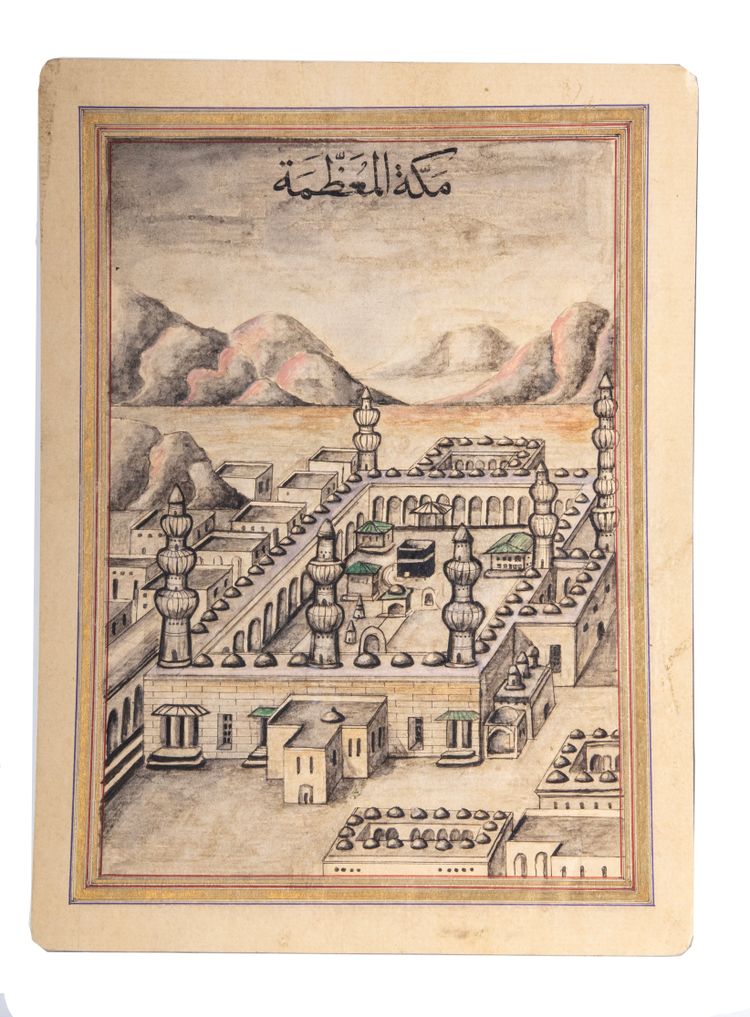 مَكّة المُعَظَّمَة